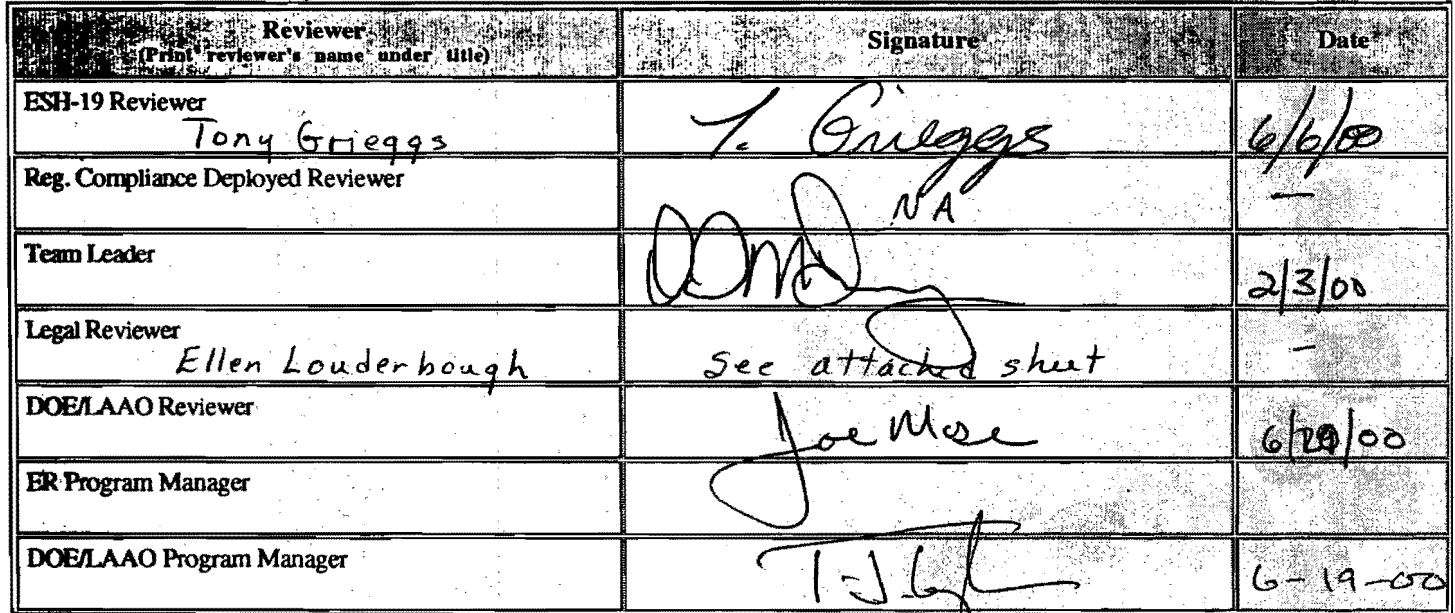 Reviewer Signature Date
(Print reviewer's name under title)
ESH-19 Reviewer
Tony Grieggs T. Grieggs 6/6/00
Reg. Compliance Deployed Reviewer
NA —
Team Leader 2/3/00
Legal Reviewer
Ellen Louderbough See attached sheet –
DOE/LAAO Reviewer
Joe Mose 6/ /00
ER Program Manager
DOE/LAAO Program Manager
6-19-00